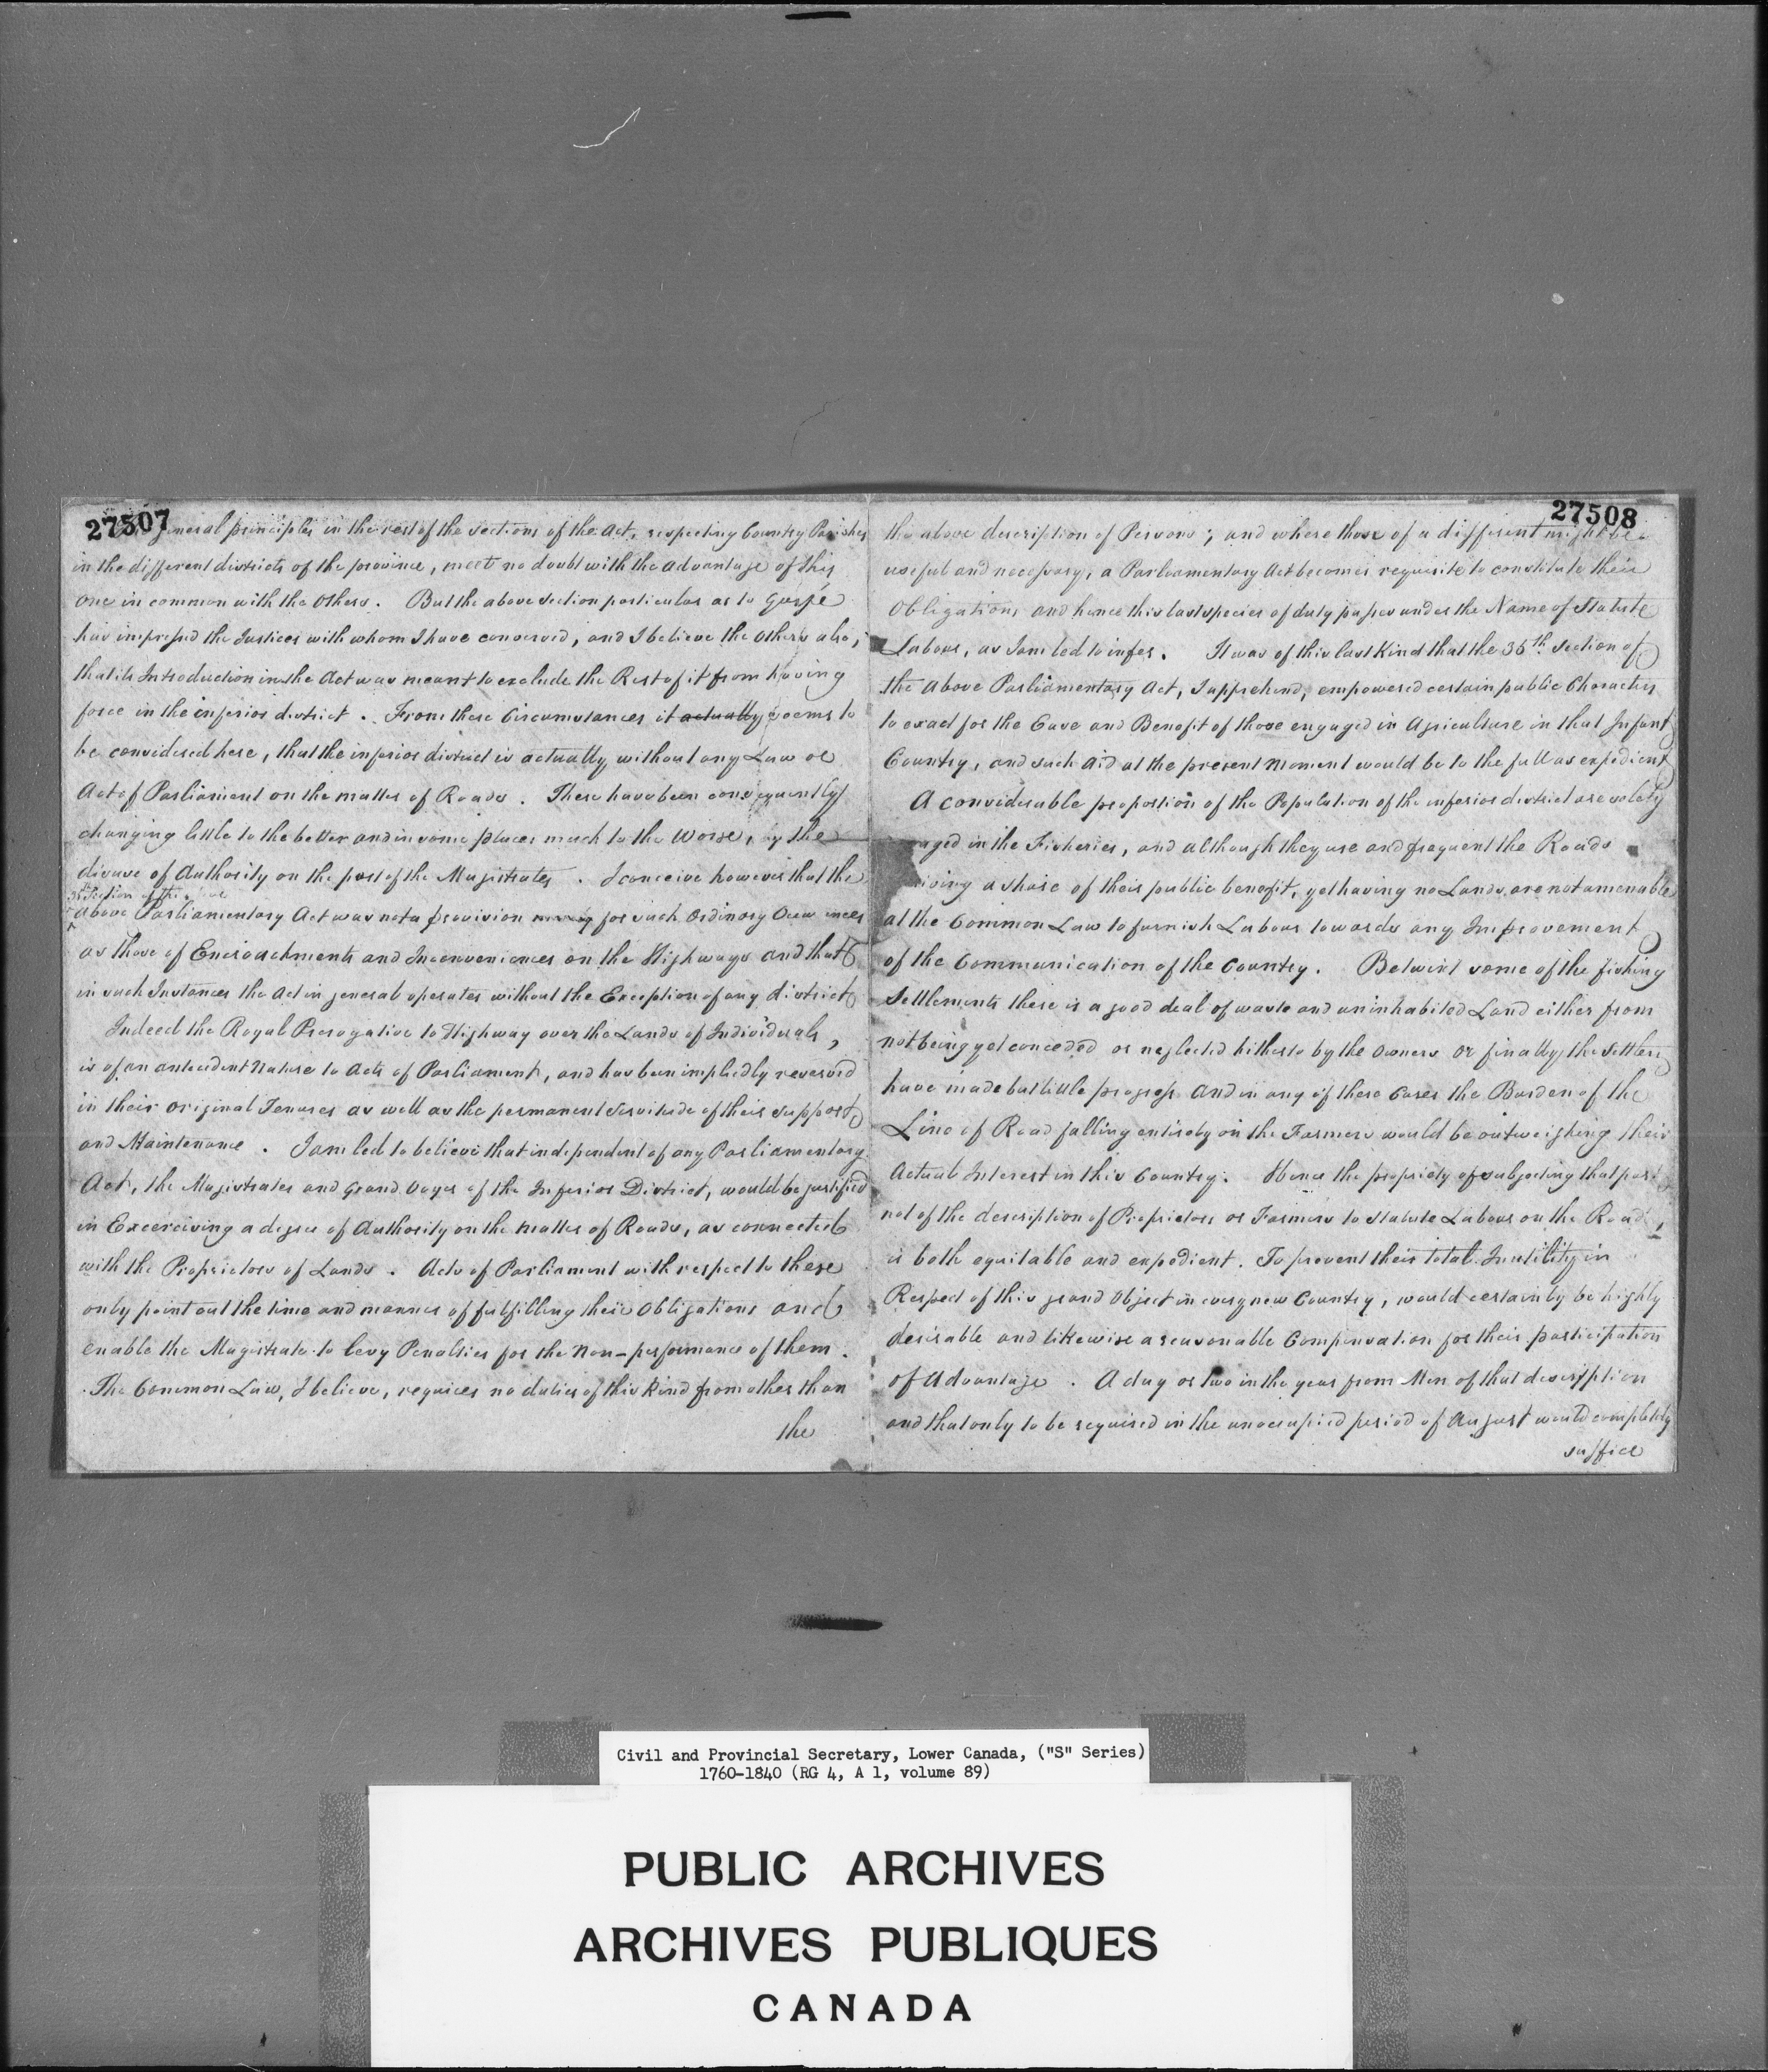 27507
General principles in the rest of the Sections of the Act, respecting Country Parishes
in the different districts of the province, meet no doubt with the advantage of this
one in common with the Others. But the above Section particular as to Gaspe
has impressed the Justices with whom I have conversed, and I believe the others also,
that its Introduction in the Act was meant to exclude the Rest of it from having
force in the inferior district. From these Circumstances it actually seems to
be considered here, that the inferior district is actually without any Law or
Act of Parliament on the matter of Roads. These have been consequently
changing little to the better and in some places much to the Worse, by the
disuse of Authority on the part of the Magistrates. I conceive however that the
35th Section of the above
above Parliamentary Act was not a provision for such Ordinary Occurrences
as those of Encroachments and Inconveniences on the Highways and that
in such Instances the Act in general operates without the Exception of any district
Indeed the Royal Prerogative to Highway over the Lands of Individuals,
is of an antecedent Nature to Acts of Parliament, and has been impliedly reserved
in their original Tenures as well as the permanent Servitude of their support
and Maintenance. I am led to believe that independent of any Parliamentary
Act, the Magistrates and Grand Voyer of the Inferior District, would be justified
in Excercising a degree of Authority on the Matter of Roads, as connected
with the Proprietors of Lands. Acts of Parliament with respect to these
only point out the time and manner of fulfilling their Obligations and
enable the Magistrate to levy Penalties for the Non-performance of them.
The Common Law, I believe, requires no duties of this kind from other than
the
27508
the above description of Persons; and where those of a different might be
useful and necessary, a Parliamentary Act becomes requisite to constitute their
Obligation, and hence this last species of duty passes under the Name of Statute
Labour, as I am led to infer. It was of this last Kind that the 35th Section of
the Above Parliamentary Act, I apprehend, empowered certain public Characters
to exact for the Ease and Benefit of those engaged in Agriculture in that Infant
Country, and such Aid at the present Moment would be to the full as expedient
A considerable proportion of the Population of the inferior district are solely
aged in the Fisheries, and although they use and frequent the Roads
iving a share of their public benefit, yet having no Lands, are not amenable
at the Common Law to furnish Labour towards any Improvement
of the Communication of the Country. Betwixt some of the fishing
Settlements there is a good deal of waste and uninhabited Land either from
not being yet conceded or neglected hitherto by the Owners or finally the Settlers
have made but little progress And in any of these Cases the Burden of the
Line of Road falling entirely on the Farmers would be outweighing their
Actual Interest in this Country. Hence the propriety of subjecting that part
not of the description of Proprietors or Farmers to Statute Labour on the Roads,
is both equitable and expedient. To prevent their total Inutility in
Respect of this grand Object in every new Country, would certainly be highly
desirable and likewise a reasonable Compensation for their participation
of Advantage. A day or two in the year from Men of that description
and that only to be required in the unoccupied period of August would completely
suffice
Civil and Provincial Secretary, Lower Canada, ("S" Series)
1760-1840 (RG 4, A 1, volume 89)
PUBLIC ARCHIVES
ARCHIVES PUBLIQUES
CANADA